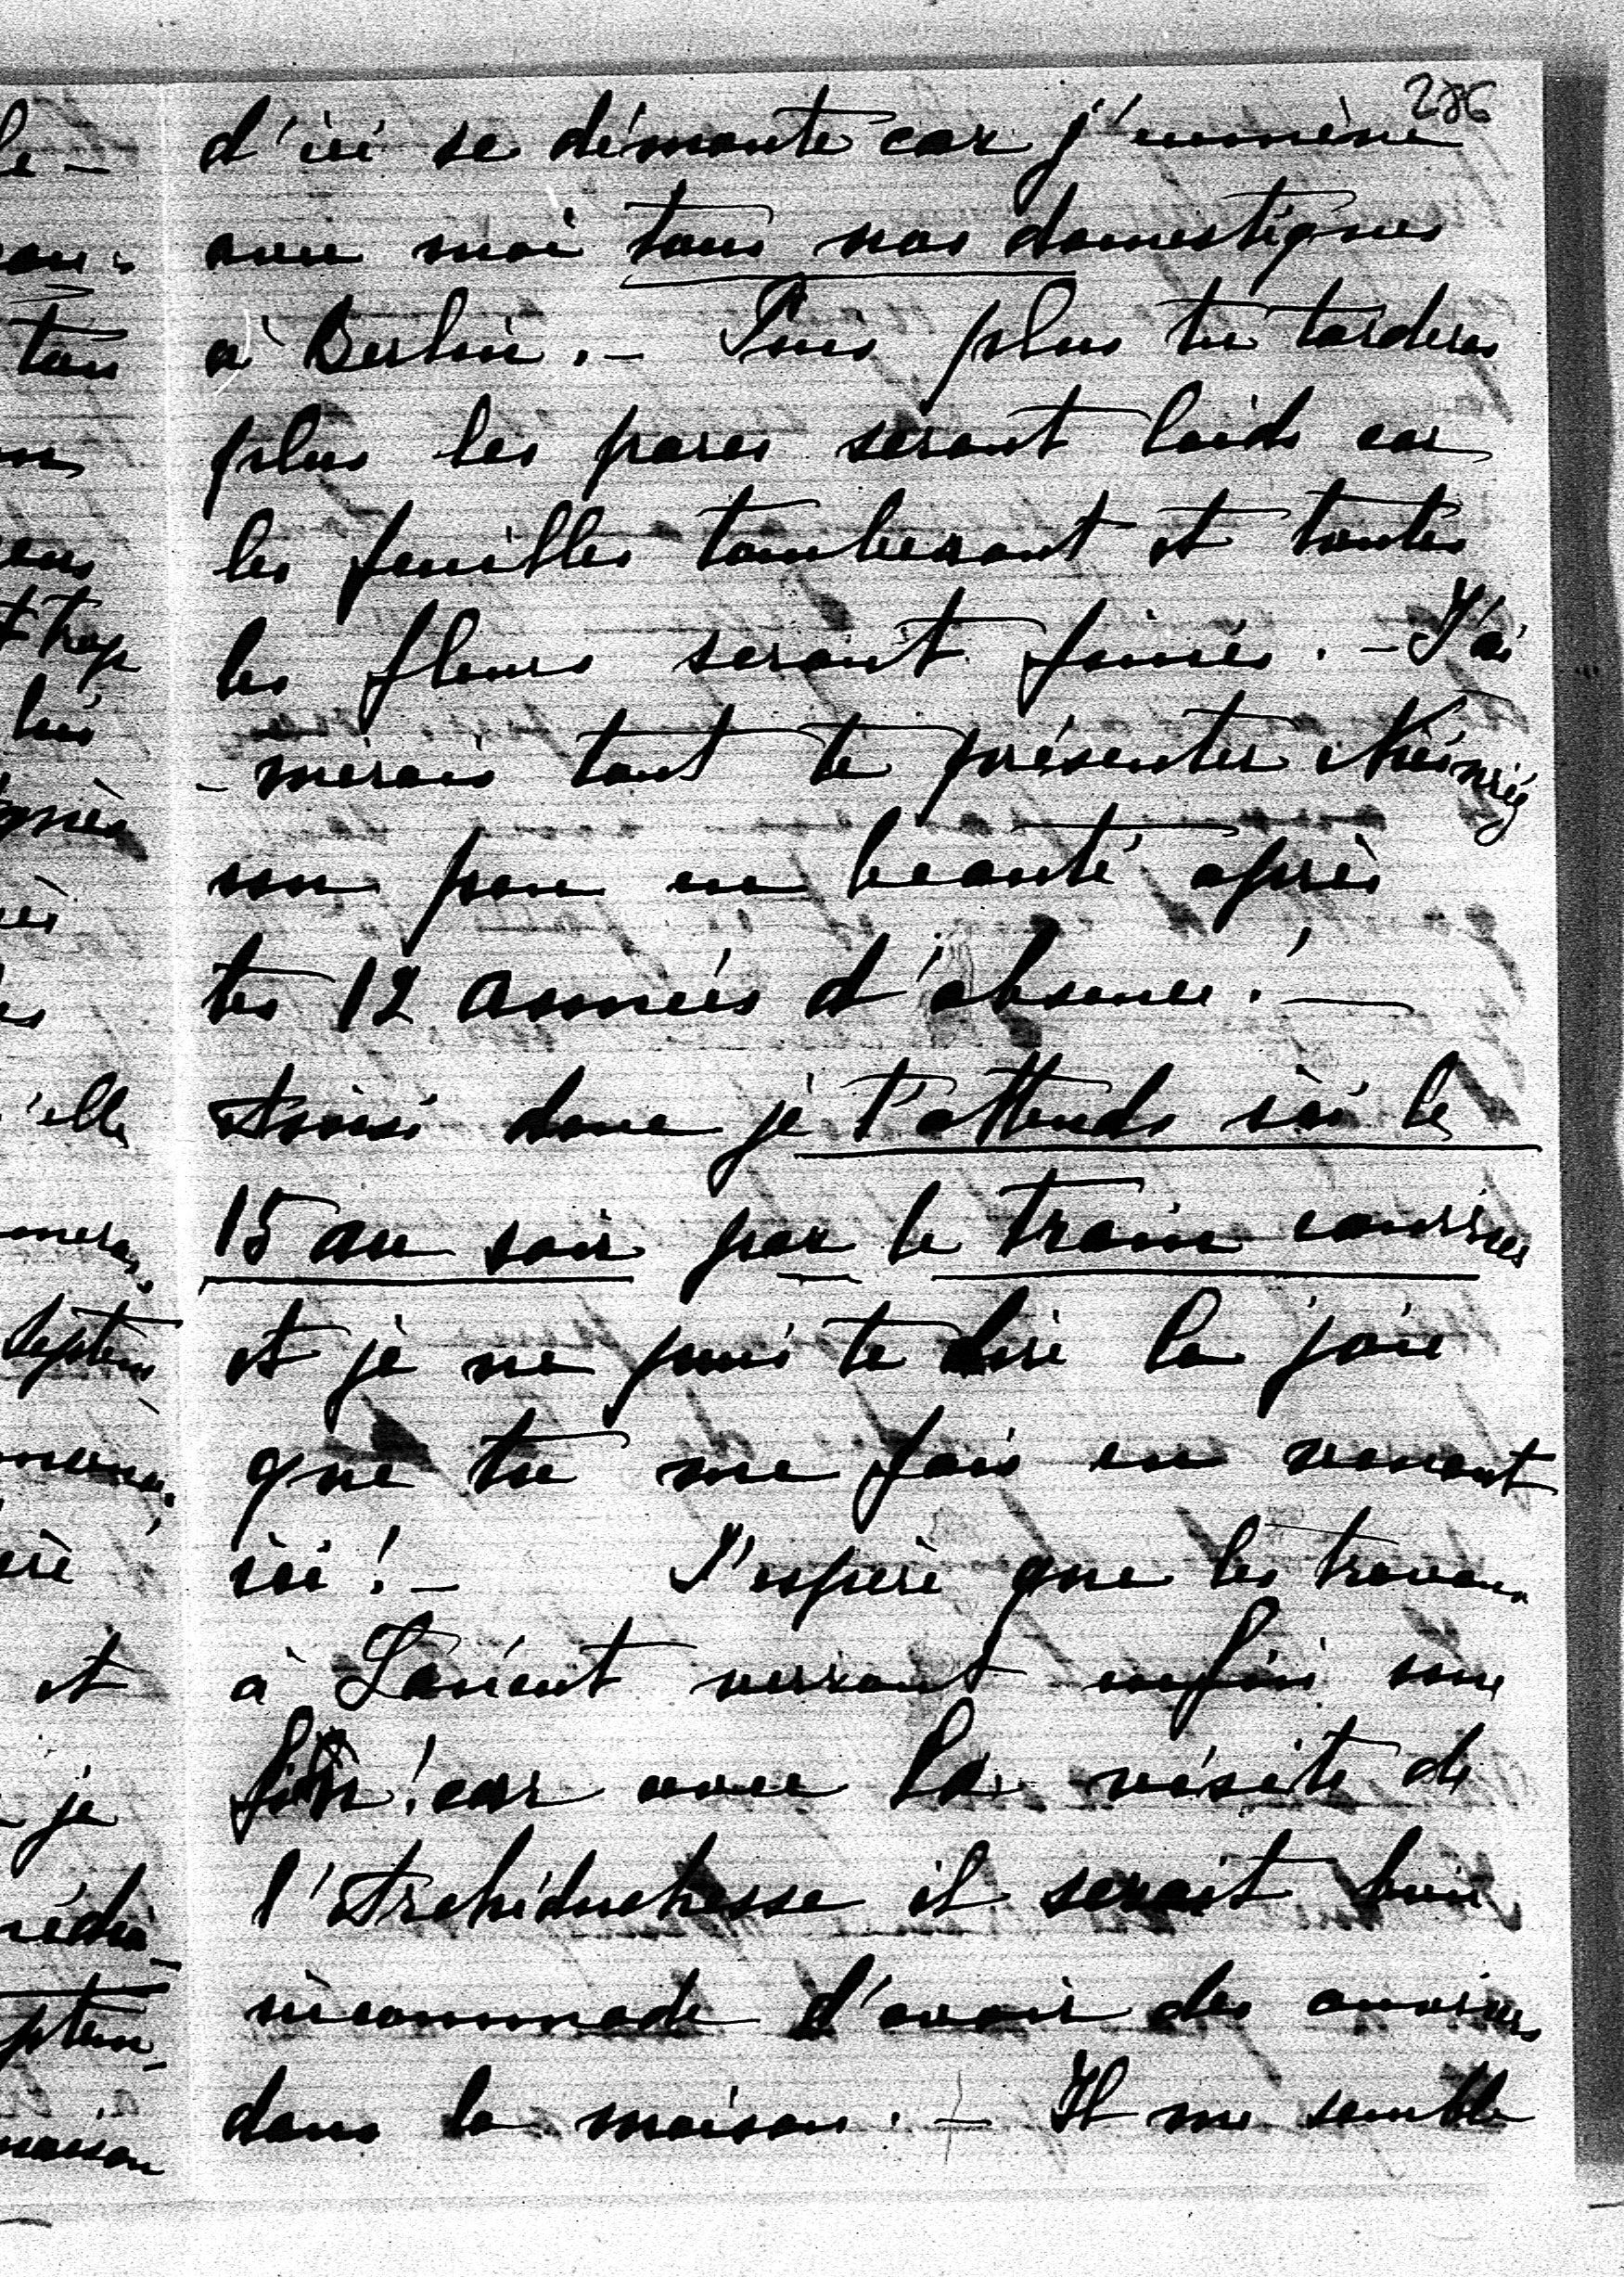 286
d'ici se démonte car j'emmène
avec moi tous nos domestiques
à Berlin. - Puis plus tu tarderas
plus les parcs seront laids car
les feuilles tomberont et toutes
les fleurs seront finies. - J'ai
- merais tant te présenter
un peu en beauté après
tes 12 années d'absence. -
Ainsi donc je t'attends ici le
15 au soir par le train courrier
et je ne puis te dire la joie
que tu me fais en venant
ici ! - J'espère que les travaux
à Lancut verront enfin une
fin ! car avec la visite de
l'Archiduchesse il serait bien
incommode d'avoir des ouvriers
dans la maison. - Il me semble